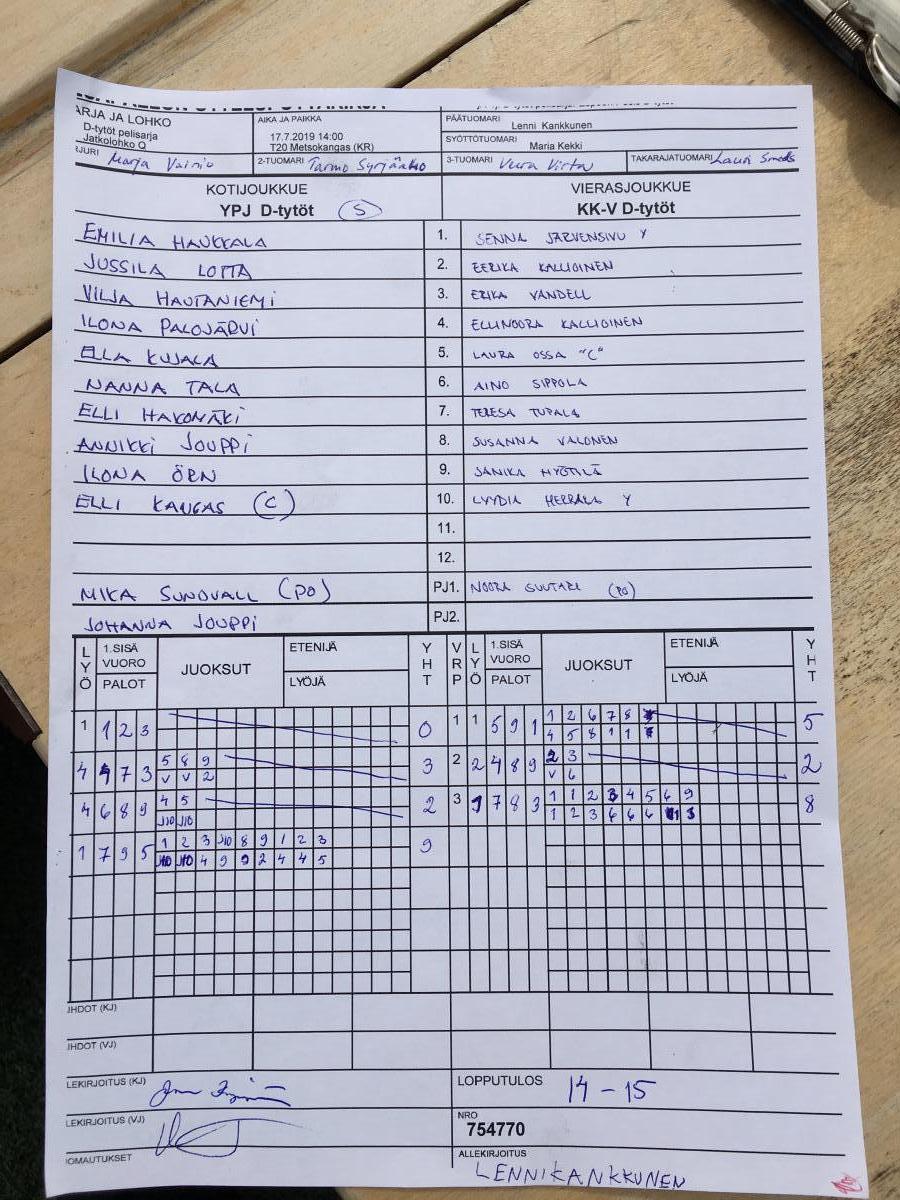 ARJA JA LOHKO
D-tytöt pelisarja
Jatkolohko Q
AIKA JA PAIKKA
17.7.2019 14:00
T20 Metsokangas (KR)
PÄÄTUOMARI
Lenni Kankkunen
SYÖTTÖTUOMARI
Maria Kekki
RJURI Marja Vainio
2-TUOMARI
3-TUOMARI Veera Virta
TAKARAJATUOMARI Lauri Smeds
KOTIJOUKKUE VIERASJOUKKUE
YPJ D-tytöt (S) KK-V D-tytöt
EMILIA HAUKKALA 1. SENNA JÄRVENSIVU Y
JUSSILA LOTTA 2. EERIKA KALLIOINEN
VILJA HAUTANIEMI 3. ERIKA VANDELL
ILONA PALOJÄRVI 4. ELLINOORA KALLIOINEN
ELLA KUJALA 5. LAURA OSSA "C"
NANNA TALA 6. AINO SIPPOLA
ELLI HAKOMÄKI 7. TERESA TUPALA
ANNIKKI JOUPPI 8. SUSANNA VALONEN
ILONA ÖRN 9. JANIKA HYÖTILÄ
ELLI KANGAS (C) 10. LYYDIA Y
11.
12.
MIKA SUNDVALL (PO) PJ1. NOORA SUUTARI (PO)
JOHANNA JOUPPI PJ2.
LYÖ 1.SISÄ VUORO PALOT JUOKSUT ETENIJÄ LYÖJÄ YHT VRP LYÖ 1.SISÄ VUORO PALOT JUOKSUT ETENIJÄ LYÖJÄ YHT
1 1 2 3 0 1 1 5 9 1 1 2 6 7 8 5
4 5 8 1 1
4 4 7 3 5 8 9 3 2 2 4 8 9 2 3 2
V V 2 V 6
4 6 8 9 4 5 2 3 9 7 8 3 1 1 2 3 4 5 6 9 8
J10 J10 1 2 3 6 6 6
1 7 9 5 1 2 3 J10 8 9 1 2 3 9
J10 J10 4 9 9 2 4 4 5
JHDOT (KJ)
JHDOT (VJ)
LEKIRJOITUS (KJ)
LOPPUTULOS 14-15
LEKIRJOITUS (VJ)
NRO
754770
OMAUTUKSET
ALLEKIRJOITUS
LENNI KANKKUNEN